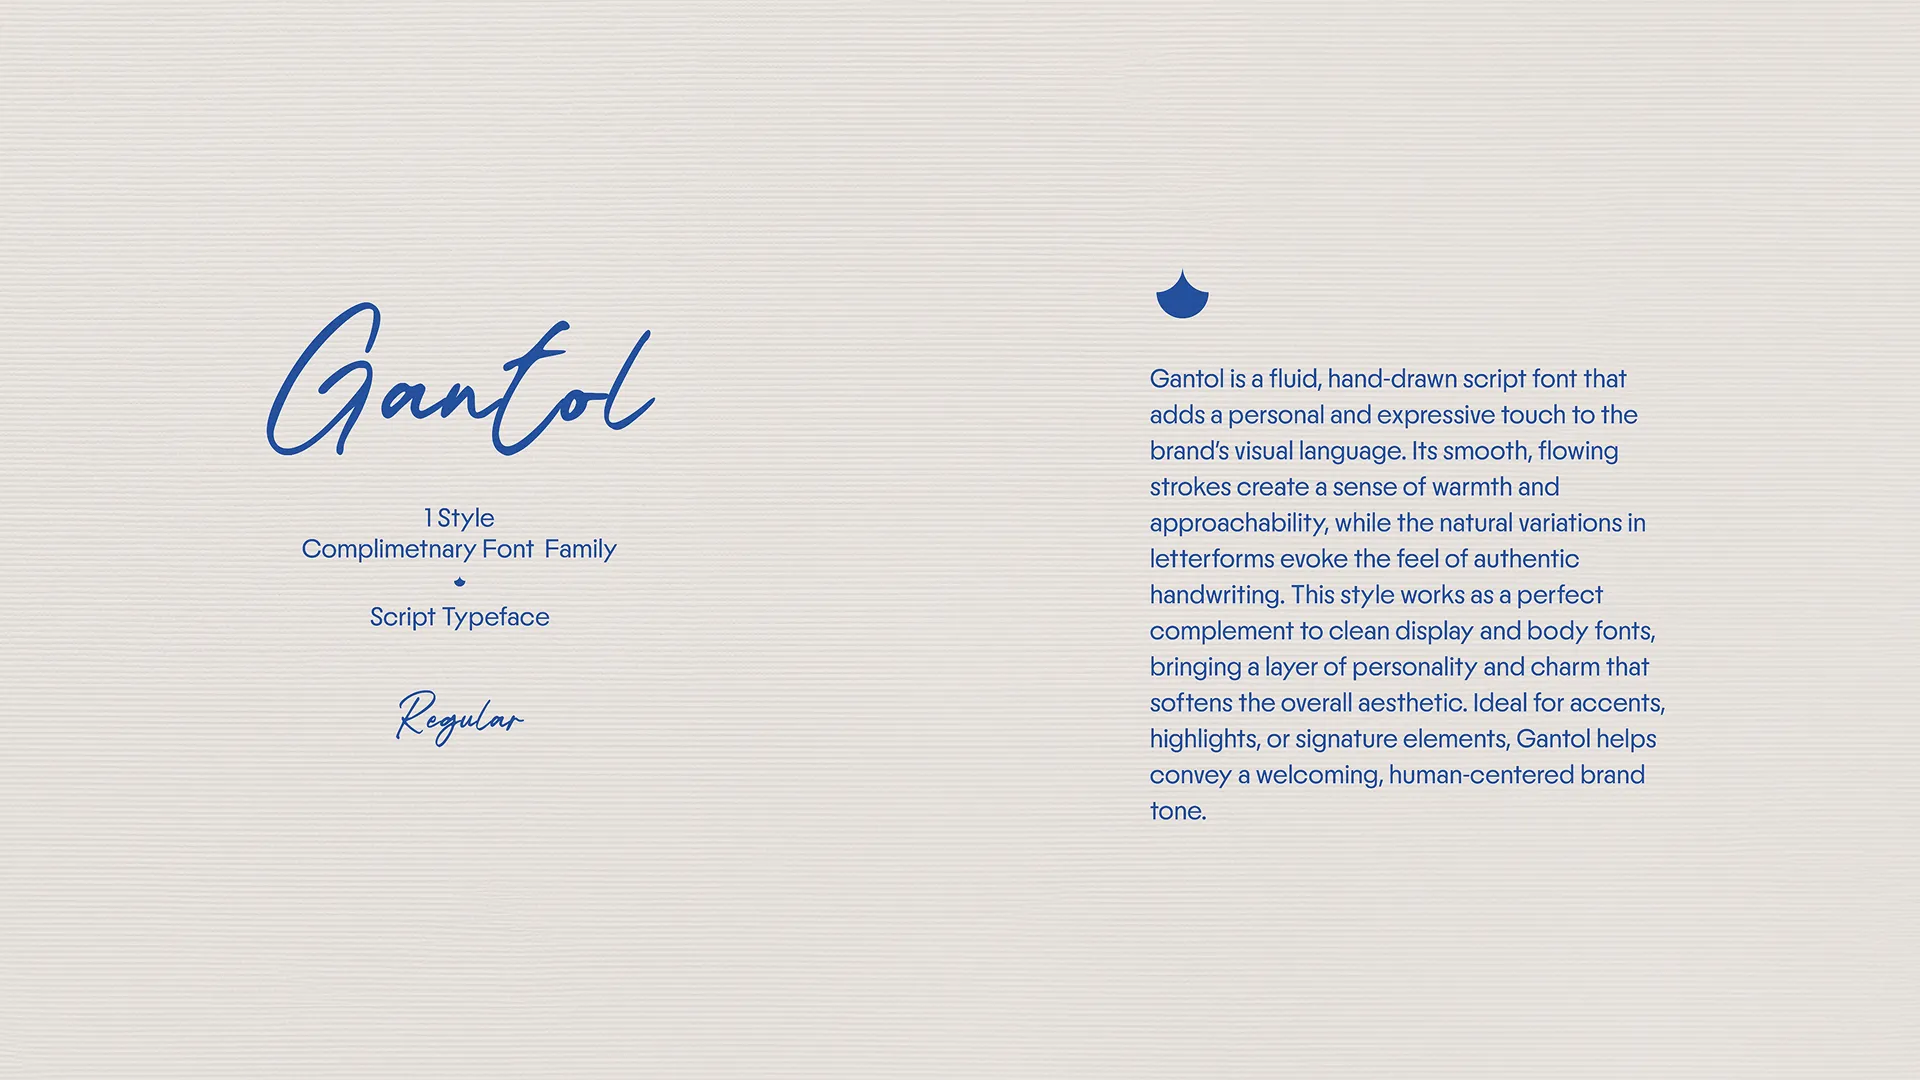 Gantol
1 Style
Complimetnary Font Family
Script Typeface
Regular
Gantol is a fluid, hand-drawn script font that
adds a personal and expressive touch to the
brand’s visual language. Its smooth, flowing
strokes create a sense of warmth and
approachability, while the natural variations in
letterforms evoke the feel of authentic
handwriting. This style works as a perfect
complement to clean display and body fonts,
bringing a layer of personality and charm that
softens the overall aesthetic. Ideal for accents,
highlights, or signature elements, Gantol helps
convey a welcoming, human-centered brand
tone.